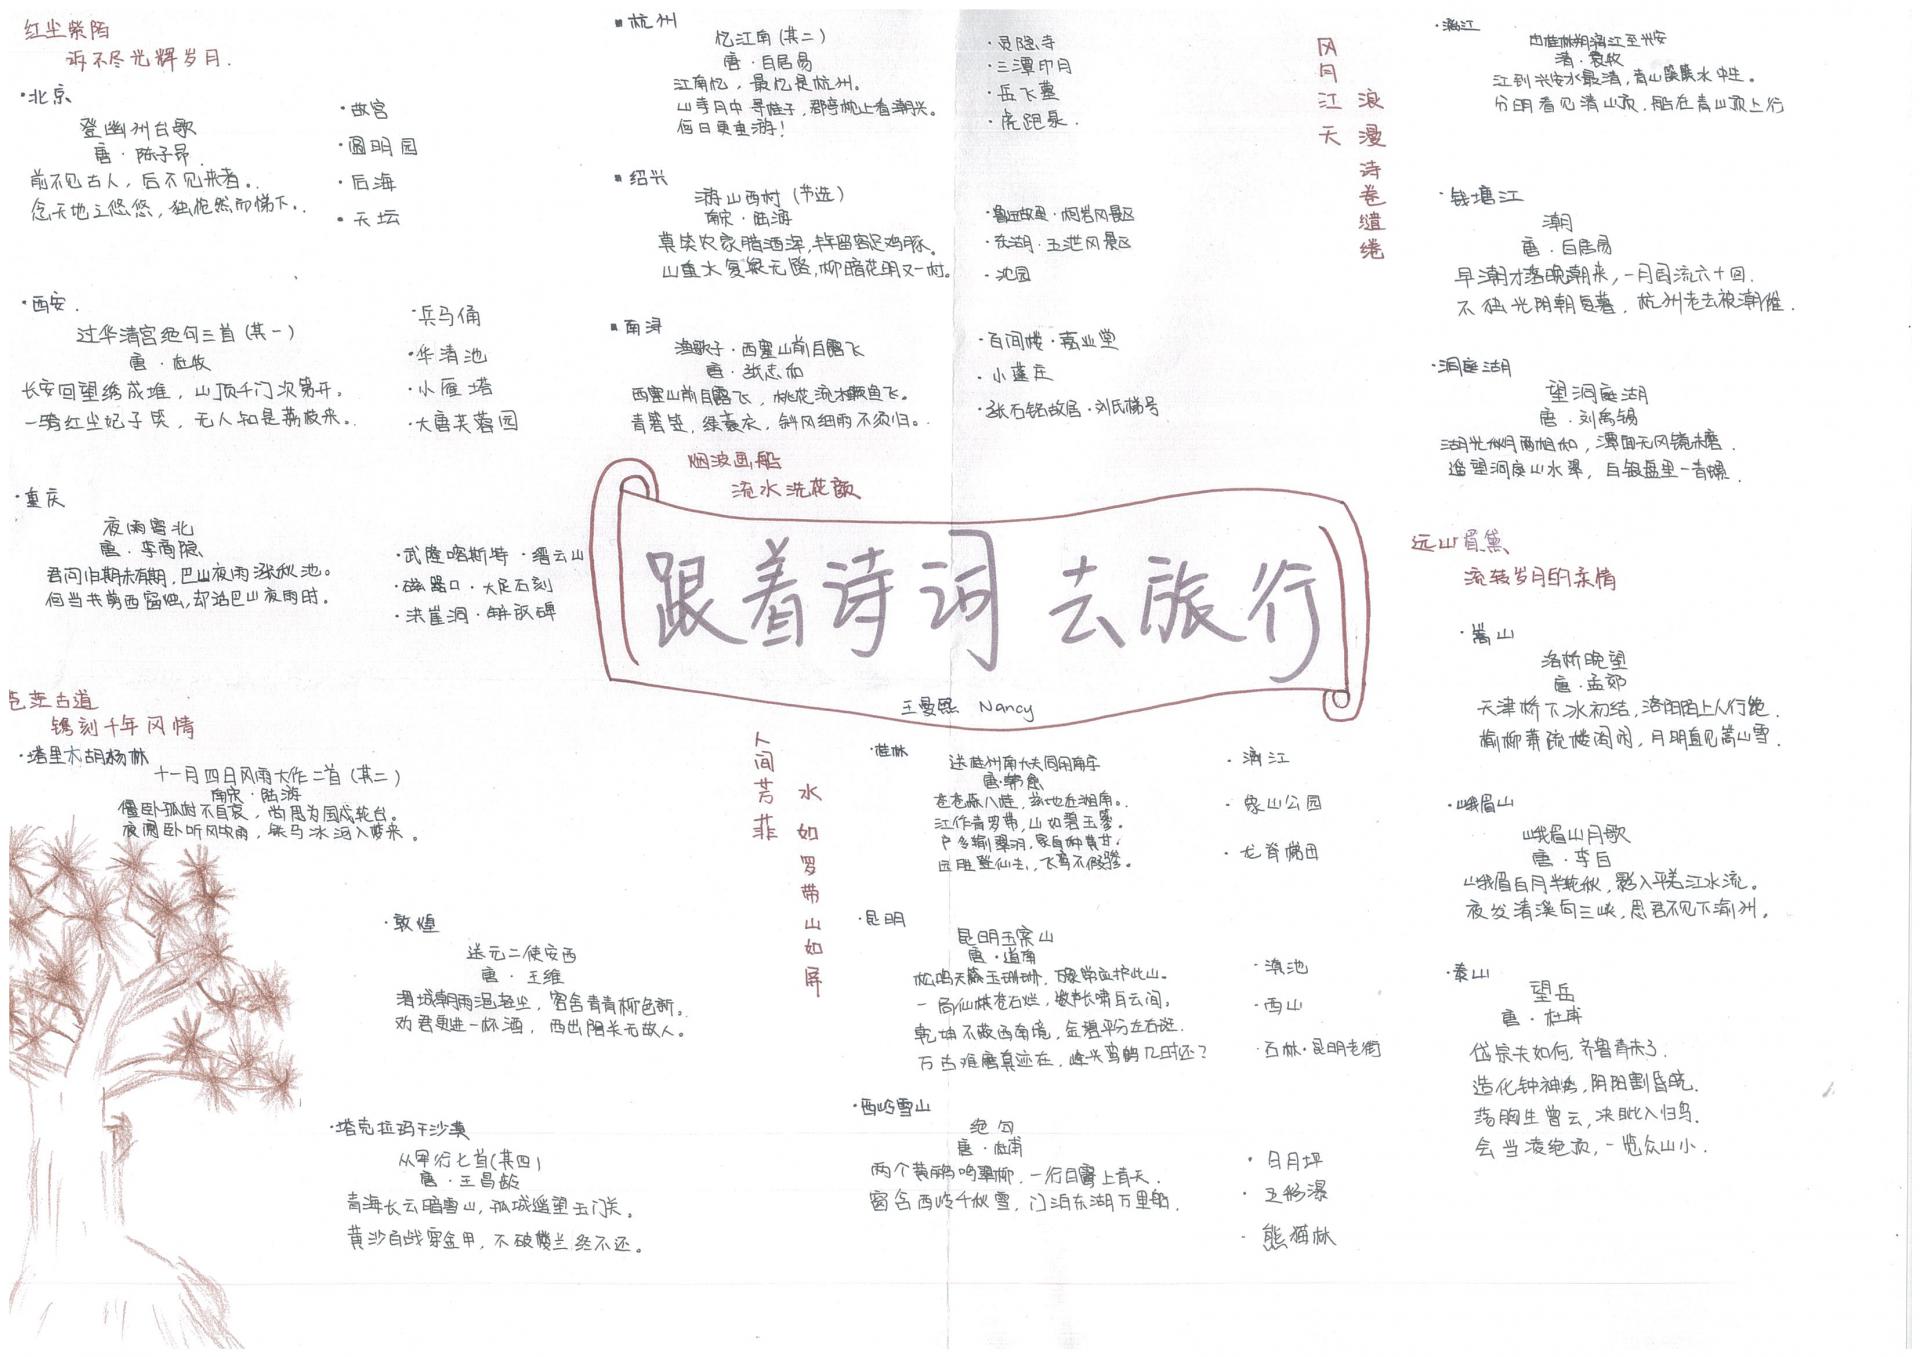 红尘紫陌
诉不尽光辉岁月.
·北京
登幽州台歌
唐·陈子昂
前不见古人，后不见来者。
念天地之悠悠，独怆然而悌下。
·故宫
·圆明园
·后海
·天坛
·西安.
过华清宫绝句三首(其一)
唐·杜牧
长安回望绣成堆，山顶千门次第开.
一骑红尘妃子笑，无人知是荔枝来。
·兵马俑
·华清池
·小雁塔
·大唐芙蓉园
·重庆
夜雨寄北
唐.李商隐
君问归期未有期，巴山夜雨涨秋池。
何当共剪西窗烛，却话巴山夜雨时.
·武隆喀斯特·缙云山
·磁器口·大足石刻
·洪崖洞·解放碑
苍茫古道
镌刻千年风情
·塔里木胡杨林
十一月四日风雨大作二首(其二)
南宋·陆游
僵卧孤村不自哀，尚思为国戍轮台。
夜阑卧听风吹雨，铁马冰河入梦来.
·敦煌
送元二使安西
唐·王维
渭城朝雨浥轻尘，客舍青青柳色新。
劝君更进一杯酒，西出阳关无故人。
·塔克拉玛干沙漠
从军行七首(其四)
唐·王昌龄
青海长云暗雪山，孤城遥望玉门关。
黄沙百战穿金甲，不破楼兰终不还。
·杭州
忆江南(其二)
唐·白居易
江南忆，最忆是杭州。
山寺月中寻桂子，郡亭枕上看潮头。
何日更重游!
·灵隐寺
·三潭印月
·岳飞墓
·虎跑泉.
·绍兴
游山西村(节选)
南宋·陆游
莫笑农家腊酒浑，丰年留客足鸡豚.
山重水复疑无路，柳暗花明又一村.
·鲁迅故里·柯岩风景区
·东湖·五泄风景区
·沈园
·南浔
渔歌子·西塞山前白鹭飞
唐·张志和
西塞山前白鹭飞，桃花流水鳜鱼飞。
青箬笠，绿蓑衣，斜风细雨不须归。
·百间楼·嘉业堂
·小莲庄
·张石铭故居·刘氏梯号
烟波画船
流水洗花颜
跟着诗词去旅行
王曼熙 Nancy
人间芳菲
水如罗带山如屏
·桂林
送桂州南大夫同用南字
唐·韩愈
苍苍森八桂，兹地在湘南。
江作青罗带，山如碧玉簪。
户多输翠羽，家自种黄甘.
远胜登仙去，飞鸾不假骖。
·漓江
·象山公园
·龙脊梯田
·昆明
昆明玉案山
唐·道南
一局仙棋苍石烂，数声长啸白云间.
乾坤不蔽西南境，金碧平分左右斑.
万古难磨真迹在，峰头鸾鹤几时还?
·滇池
·西山
·石林·昆明老街
·西岭雪山
绝句
唐·杜甫
两个黄鹂鸣翠柳，一行白鹭上青天.
窗含西岭千秋雪，门泊东湖万里船.
·日月坪
·五彩瀑
·熊猫林
风月江天
浪漫诗卷缱绻
·漓江
由桂林朔漓江至兴安
清·袁枚
江到兴安水最清，青山簇簇水中生。
分明看见青山顶，船在青山顶上行
·钱塘江
潮
唐·白居易
早潮才落晚潮来，一月周流六十回.
不独光阴朝复暮，杭州老去被潮催.
·洞庭湖
望洞庭湖
唐·刘禹锡
湖光秋月两相和，潭面无风镜未磨.
遥望洞庭山水翠，白银盘里一青螺.
远山眉黛
流转岁月的柔情
·嵩山
洛桥晚望
唐·孟郊
天津桥下冰初结，洛阳陌上人行绝.
榆柳萧疏楼阁闲，月明直见嵩山雪.
·峨眉山
峨眉山月歌
唐·李白
峨眉山月半轮秋，影入平羌江水流。
夜发清溪向三峡，思君不见下渝州。
·泰山
望岳
唐·杜甫
岱宗夫如何，齐鲁青未了.
造化钟神秀，阴阳割昏晓.
荡胸生曾云，决眦入归鸟.
会当凌绝顶，一览众山小.